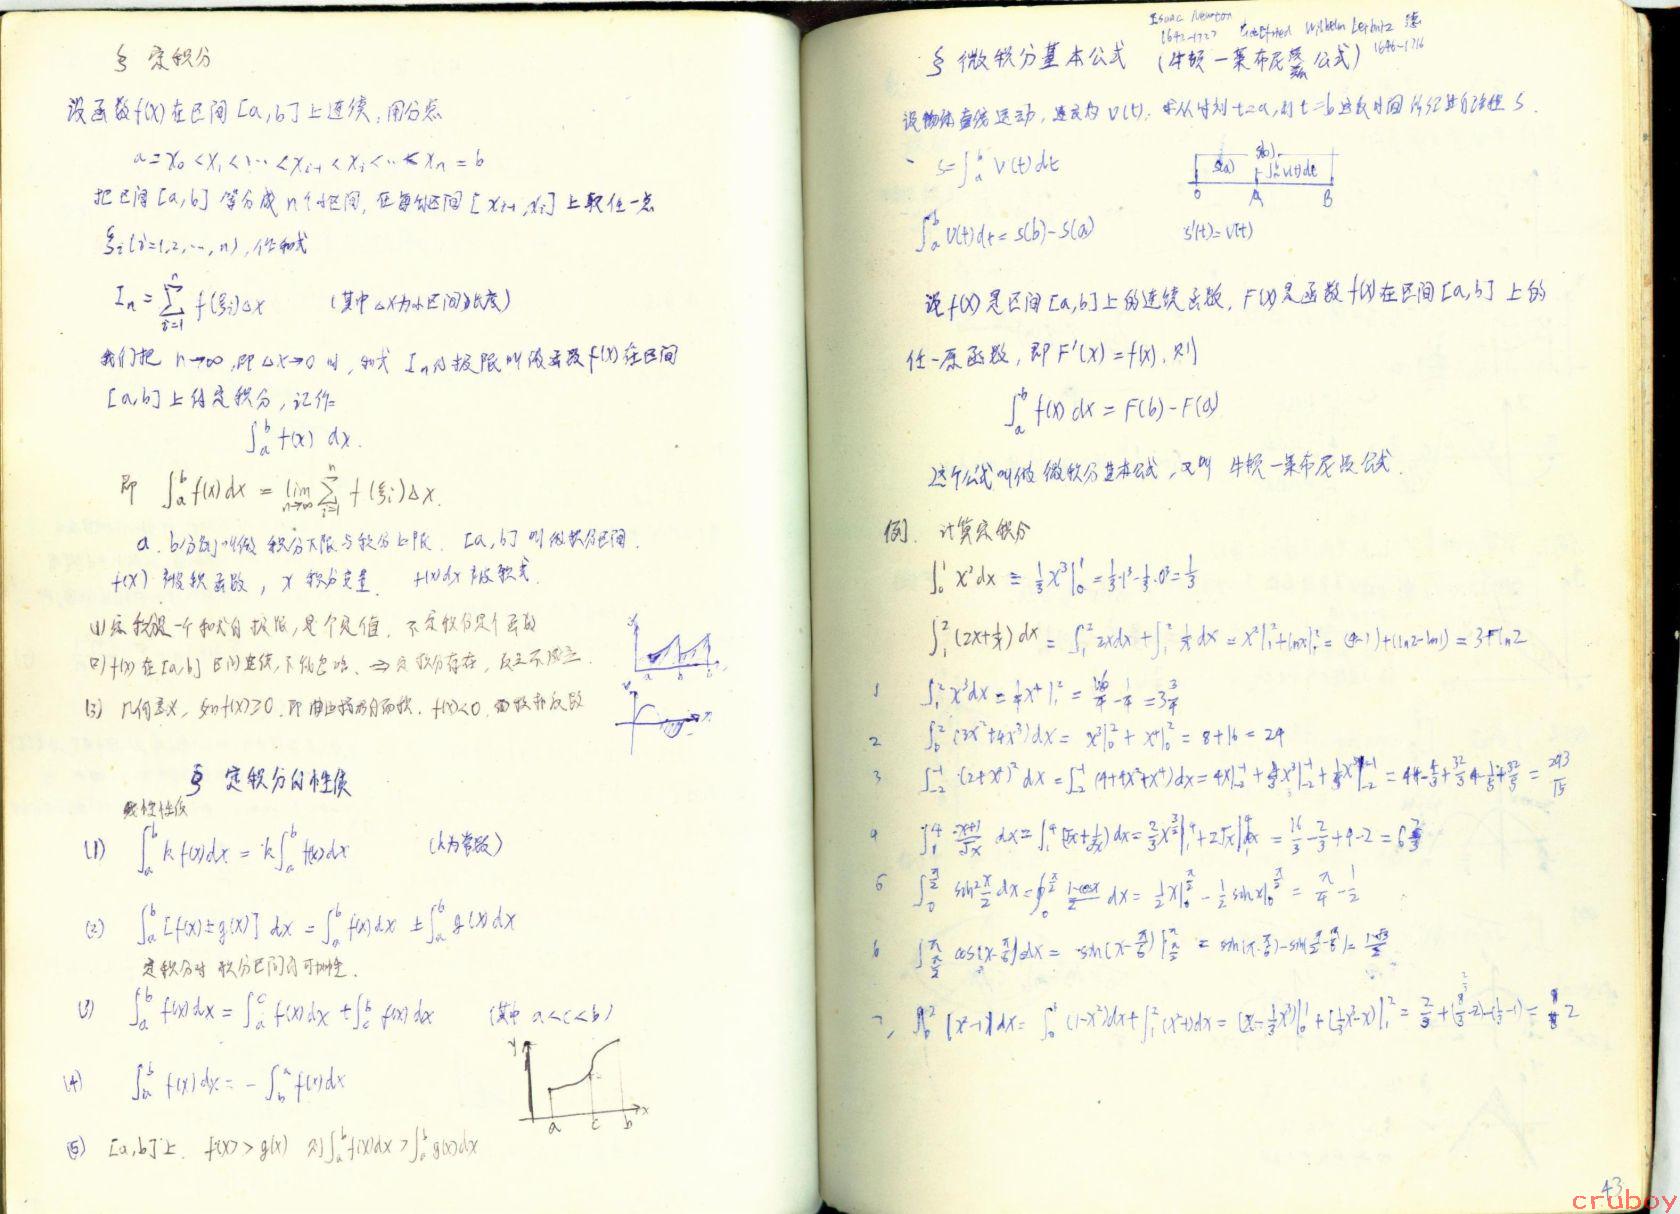 § 定积分
设函数f(x)在区间[a,b]上连续,用分点
a=x₀<x₁<…<xᵢ₋₁<xᵢ<…<xₙ=b
把区间[a,b]等分成n个小区间,在每个小区间[xᵢ₋₁,xᵢ]上取任一点
ξᵢ(i=1,2,…,n),作和式
Iₙ=∑ᵢ₌₁ⁿ f(ξᵢ)△x (其中△x为小区间长度)
我们把 n→∞,即△x→0时,和式Iₙ的极限叫做函数f(x)在区间
[a,b]上的定积分,记作
∫ₐᵇ f(x) dx.
即 ∫ₐᵇ f(x)dx = lim n→∞ ∑ᵢ₌₁ⁿ f(ξᵢ)△x.
a、b分别叫做 积分下限与积分上限. [a,b]叫做积分区间.
f(x) 被积函数, x 积分变量. f(x)dx 被积式.
(1)定积分是一个和式的极限,是个定值. 不定积分是个函数
(2) f(x)在[a,b]区间连续, ⇒定积分存在,反之不成立.
(3) 几何意义, f(x)≥0, 即曲边梯形的面积. f(x)<0, 面积相反数
a b
§ 定积分的性质
线性性质
(1) ∫ₐᵇ k f(x)dx = k∫ₐᵇ f(x)dx (k为常数)
(2) ∫ₐᵇ [f(x)±g(x)] dx = ∫ₐᵇ f(x)dx ± ∫ₐᵇ g(x)dx
定积分对 积分区间的可加性.
(3) ∫ₐᵇ f(x)dx = ∫ₐᶜ f(x)dx + ∫_c^b f(x)dx (其中 a<c<b)
(4) ∫ₐᵇ f(x)dx = - ∫_b^a f(x)dx
y x a c b
(5) [a,b]上. f(x)>g(x) 则∫ₐᵇ f(x)dx>∫ₐᵇ g(x)dx
Isaac Newton 1642-1727 Gottfried Wilhelm Leibniz 德 1646-1716
§ 微积分基本公式 (牛顿-莱布尼兹公式)
设物体直线运动,速度为v(t), 求从时刻t=a,到t=b这段时间所经过的路程 S.
S=∫ₐᵇ v(t)dt
S(b)
S(a) ∫ₐᵇ v(t)dt
0 A B
∫ₐᵇ v(t)dt = S(b)-S(a) S'(t)=v(t)
设f(x)是区间[a,b]上的连续函数, F(x)是函数f(x)在区间[a,b]上的
任一原函数, 即F'(x)=f(x), 则
∫ₐᵇ f(x) dx = F(b)-F(a)
这个公式叫做 微积分基本公式, 又叫 牛顿-莱布尼兹公式.
例. 计算定积分
∫₀¹ x²dx = ⅓x³|₀¹ = ⅓·1³-⅓·0³=⅓
∫₁² (2x+1/x) dx = ∫₁² 2xdx + ∫₁² 1/x dx = x²|₁²+lnx|₁² = (4-1)+(ln2-ln1) = 3+ln2
1 ∫₁² x³dx = ¼x⁴|₁² = 16/4-1/4 = 3¾
2 ∫₀² (3x²+4x³)dx = x³|₀² + x⁴|₀² = 8+16 = 24
3 ∫₋₂⁻¹ (2+x²)² dx = ∫₋₂⁻¹ (4+4x²+x⁴)dx = 4x|₋₂⁻¹ + 4/3x³|₋₂⁻¹ + 1/5x⁵|₋₂⁻¹ = 293/15
4 ∫₁⁴ (x+1)/√x dx = ∫₁⁴ (√x+1/√x)dx = ⅔x^(3/2)|₁⁴+2√x|₁⁴ = 16/3-2/3+4-2 = 6⅔
5 ∫₀^(π/2) sin²x/2 dx = ∫₀^(π/2) (1-cosx)/2 dx = ½x|₀^(π/2) - ½sinx|₀^(π/2) = π/4-1/2
6
7, ∫₀² |x²-1|dx = ∫₀¹ (1-x²)dx+∫₁² (x²-1)dx = (x-⅓x³)|₀¹+(⅓x³-x)|₁² = ⅔+(8/3-2)-(⅓-1) = 2
43
cruboy